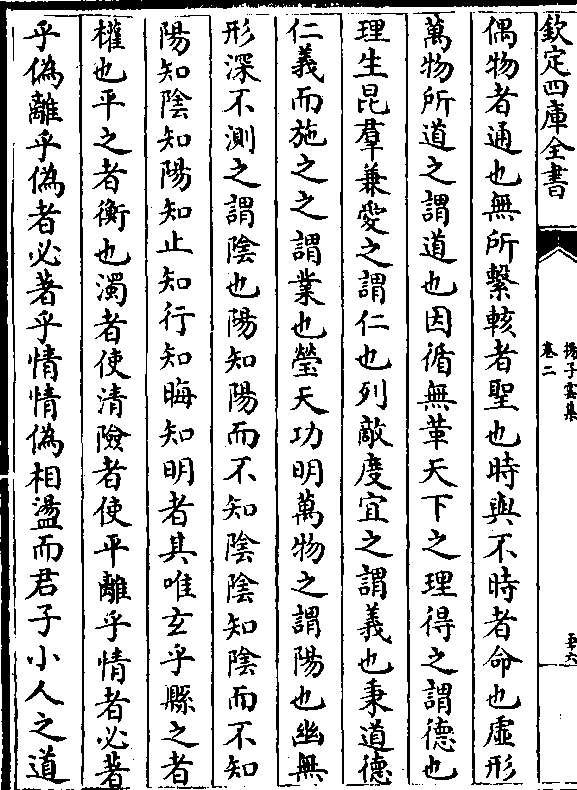 欽定四庫全書
揚子雲集
卷二
偶物者通也無所繫輆者聖也時與不時者命也虛形
萬物所道之謂道也因循無革天下之理得之謂德也
理生昆羣兼愛之謂仁也列敵度宜之謂義也秉道德
仁義而施之之謂業也瑩天功明萬物之謂陽也幽無
形深不測之謂陰也陽知陽而不知陰陰知陰而不知
陽知陰知陽知止知行知晦知明者其唯玄乎縣之者
權也平之者衡也濁者使清險者使平離乎情者必著
乎偽離乎偽者必著乎情情偽相盪而君子小人之道